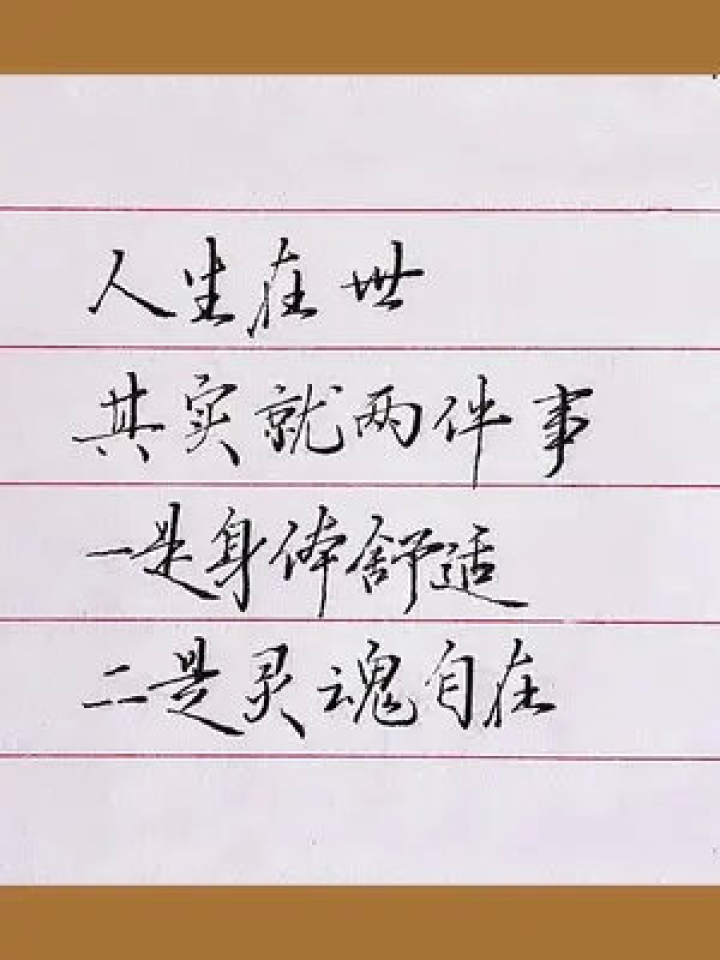 人生在世
其实就两件事
一是身体舒适
二是灵魂自在